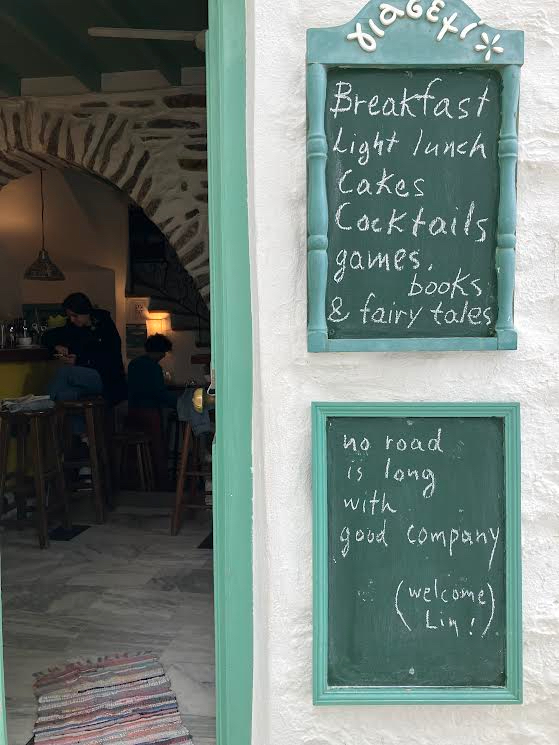 Breakfast
Light lunch
Cakes
Cocktails
games,
books
& fairy tales
no road
is long
with
good company
(welcome
Lin!)